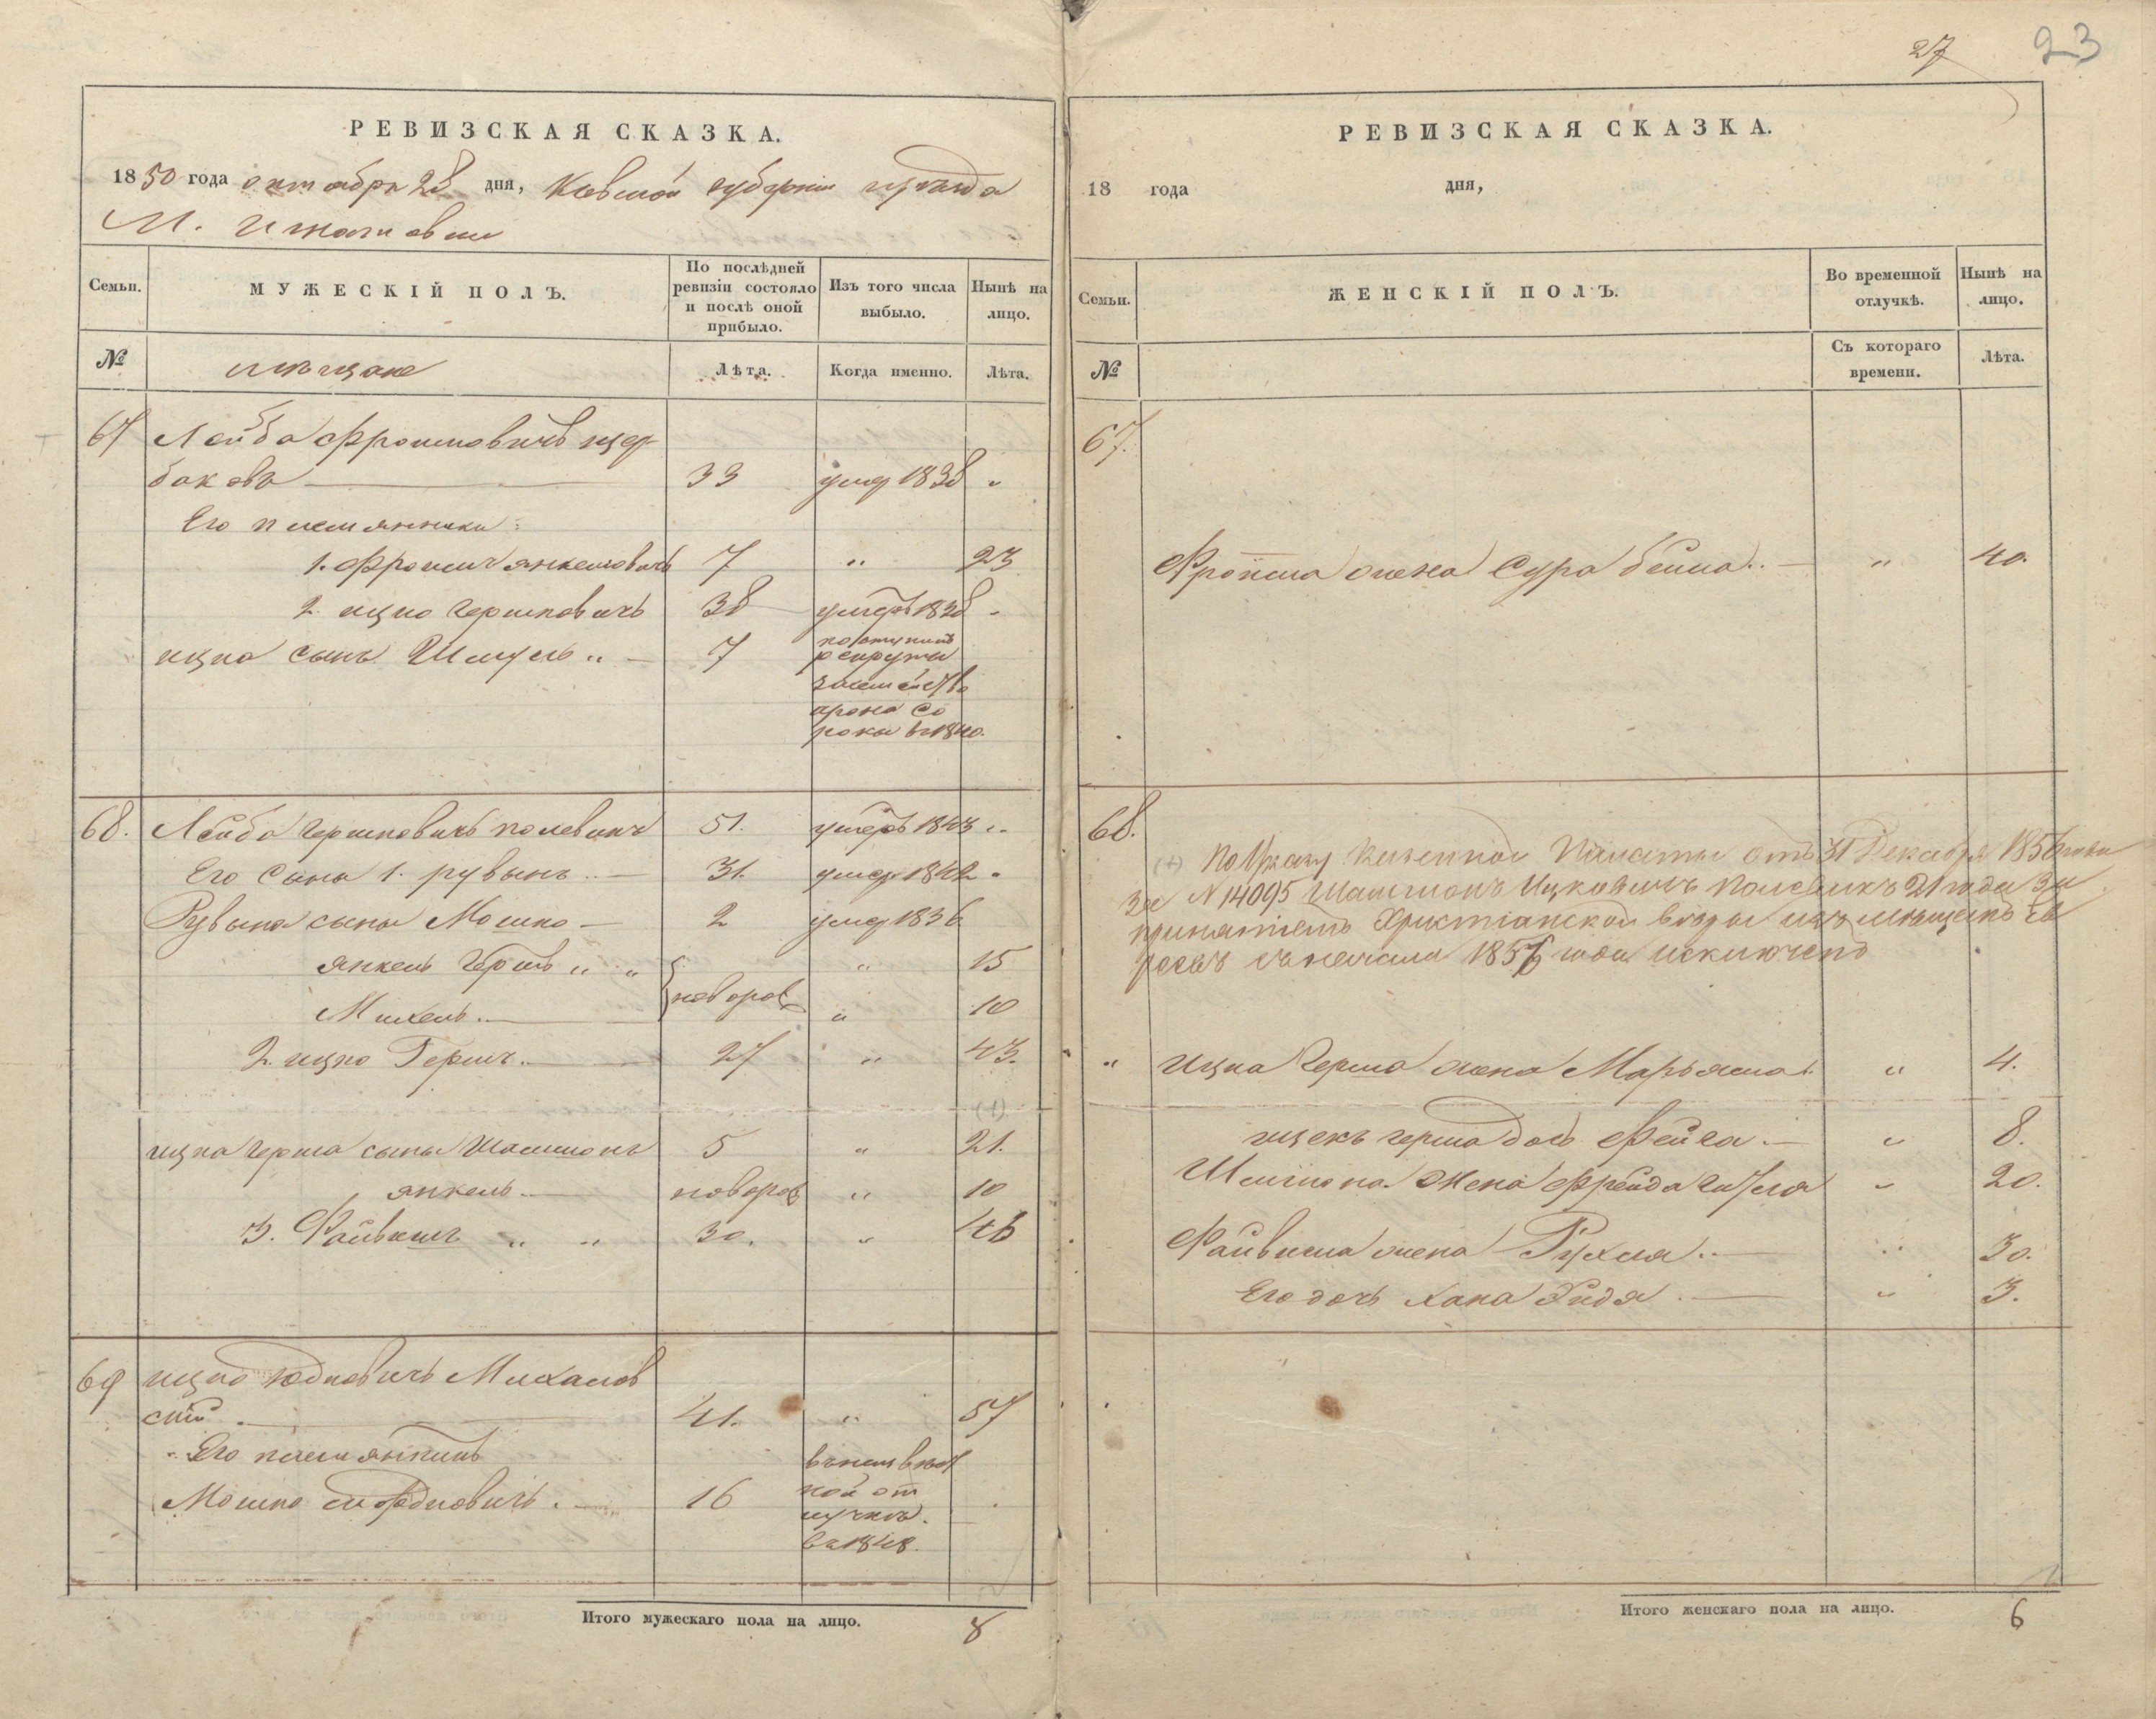 27 23
РЕВИЗСКАЯ СКАЗКА.
1850 года октября 28 дня, Киевской губернии уезда
М. Игнатовки
Семьи. МУЖЕСКІЙ ПОЛЪ. По послѣдней ревизіи состояло и послѣ оной прибыло. Изъ того числа выбыло. Нынѣ на лицо.
№ мѣщане Лѣта. Когда именно. Лѣта.
67 Лейба Фроимовичъ щер-
баковъ 33 умер 1838 "
Его племянники:
1. Фроимъ янкелювичъ 7 " 23
2. ицко гершковичъ 38 умеръ 1838 "
ицка сынъ Шмуль " 7 поступилъ
рекруты
за семейство
арона Со
роки въ 1840.
68. Лейба гершковичъ полевикъ 51. умеръ 1843 "
Его сыны 1. рувынъ 31. умер 1842 "
Рувына сыны Мошко 2 умер 1836
янкель Гершъ " " новорож " 15
Михель. " 10
2. ицко Гершъ. 27 " 43.
(+)
ицка герша сыны Шамшонъ 5 " 21.
янкель новорож " 10
3. Файвишъ " " 30. " 46
69 ицко юдковичъ Михайлов
скій. 41. " 57
Его племянникъ
Мошко мордковичъ. 16 в неизвѣст
ной от
лучкѣ.
въ 1848.
Итого мужескаго пола на лицо. 8
РЕВИЗСКАЯ СКАЗКА.
18 года дня,
Семьи. ЖЕНСКІЙ ПОЛЪ. Во временной отлучкѣ. Нынѣ на лицо.
№ Съ котораго времени. Лѣта.
67.
Фроима жена Сура бейла. " 40.
68.
(+) По Указу Казенной Палаты отъ 31 Декабря 1856 года
За № 14095 Шамшонъ Ицковичъ Полевикъ 21 года за
принятіемъ Христіанской вѣры изъ мѣщанъ Ев
реевъ съ начала 1857 года исключенъ
" ицка герша жена Марьяма. " 4.
ицекъ герша дочь Фейга. " 8.
Шамшона жена Фрейда гитля " 20.
Файвиша жена Рухля. " 30.
Его дочь хана Эидя. " 3.
Итого женскаго пола на лицо. 6